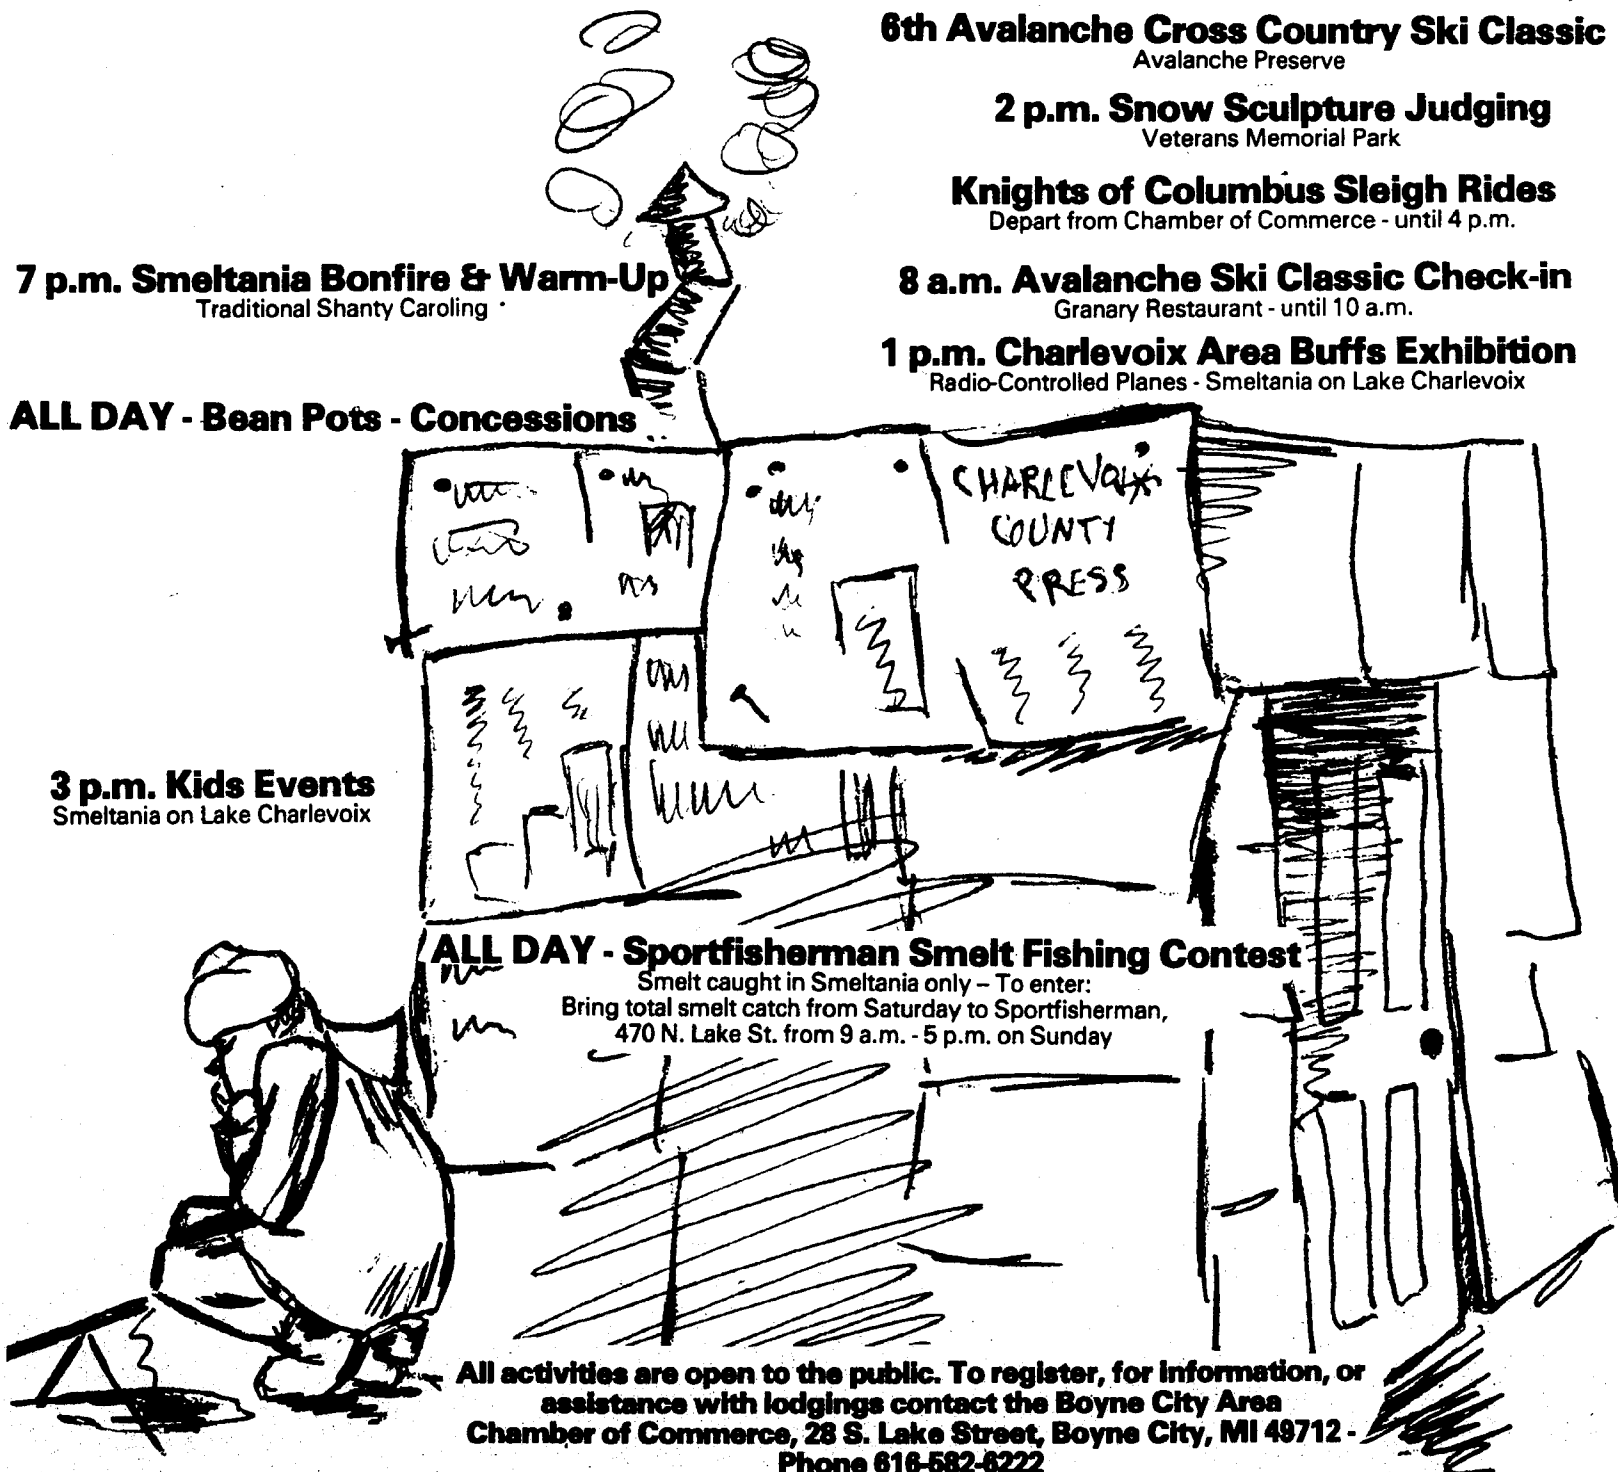 6th Avalanche Cross Country Ski Classic
Avalanche Preserve
2 p.m. Snow Sculpture Judging
Veterans Memorial Park
Knights of Columbus Sleigh Rides
Depart from Chamber of Commerce - until 4 p.m.
7 p.m. Smeltania Bonfire & Warm-Up
Traditional Shanty Caroling
8 a.m. Avalanche Ski Classic Check-in
Granary Restaurant - until 10 a.m.
1 p.m. Charlevoix Area Buffs Exhibition
Radio-Controlled Planes - Smeltania on Lake Charlevoix
ALL DAY - Bean Pots - Concessions
CHARLEVOIX
COUNTY
PRESS
3 p.m. Kids Events
Smeltania on Lake Charlevoix
ALL DAY - Sportfisherman Smelt Fishing Contest
Smelt caught in Smeltania only – To enter:
Bring total smelt catch from Saturday to Sportfisherman,
470 N. Lake St. from 9 a.m. - 5 p.m. on Sunday
All activities are open to the public. To register, for information, or
assistance with lodgings contact the Boyne City Area
Chamber of Commerce, 28 S. Lake Street, Boyne City, MI 49712 -
Phone 616-582-6222